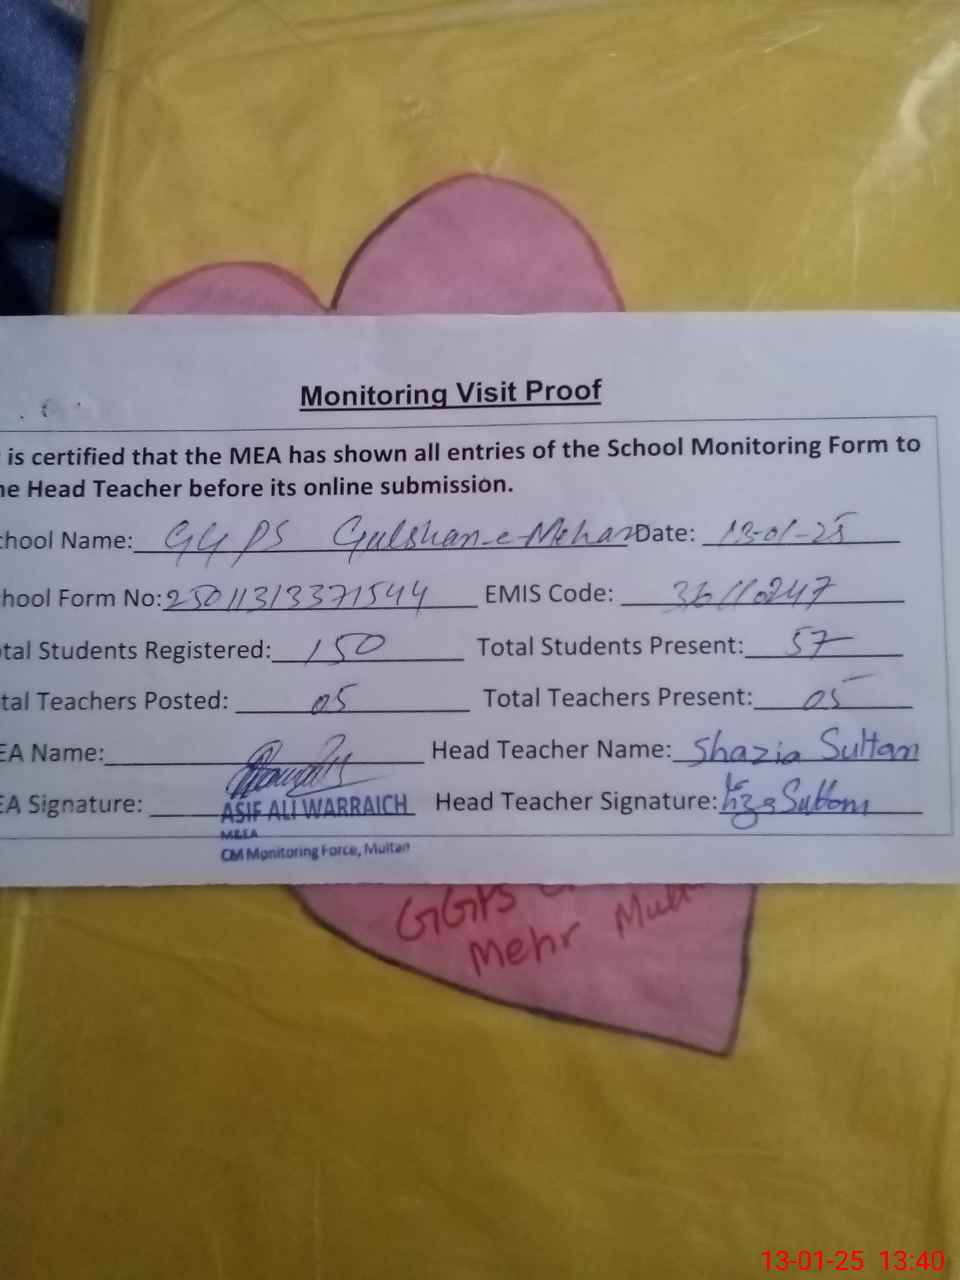 Monitoring Visit Proof
is certified that the MEA has shown all entries of the School Monitoring Form to
he Head Teacher before its online submission.
chool Name: GGPS Gulshan-e-Mehar Date: 13-01-25
hool Form No: 25011313371544 EMIS Code: 36110247
tal Students Registered: 150 Total Students Present: 57
tal Teachers Posted: 05 Total Teachers Present: 05
EA Name: Head Teacher Name: Shazia Sultan
EA Signature: ASIF ALI WARRAICH Head Teacher Signature:
M&EA
CM Monitoring Force, Multan
GGPS
Mehr
13-01-25 13:40